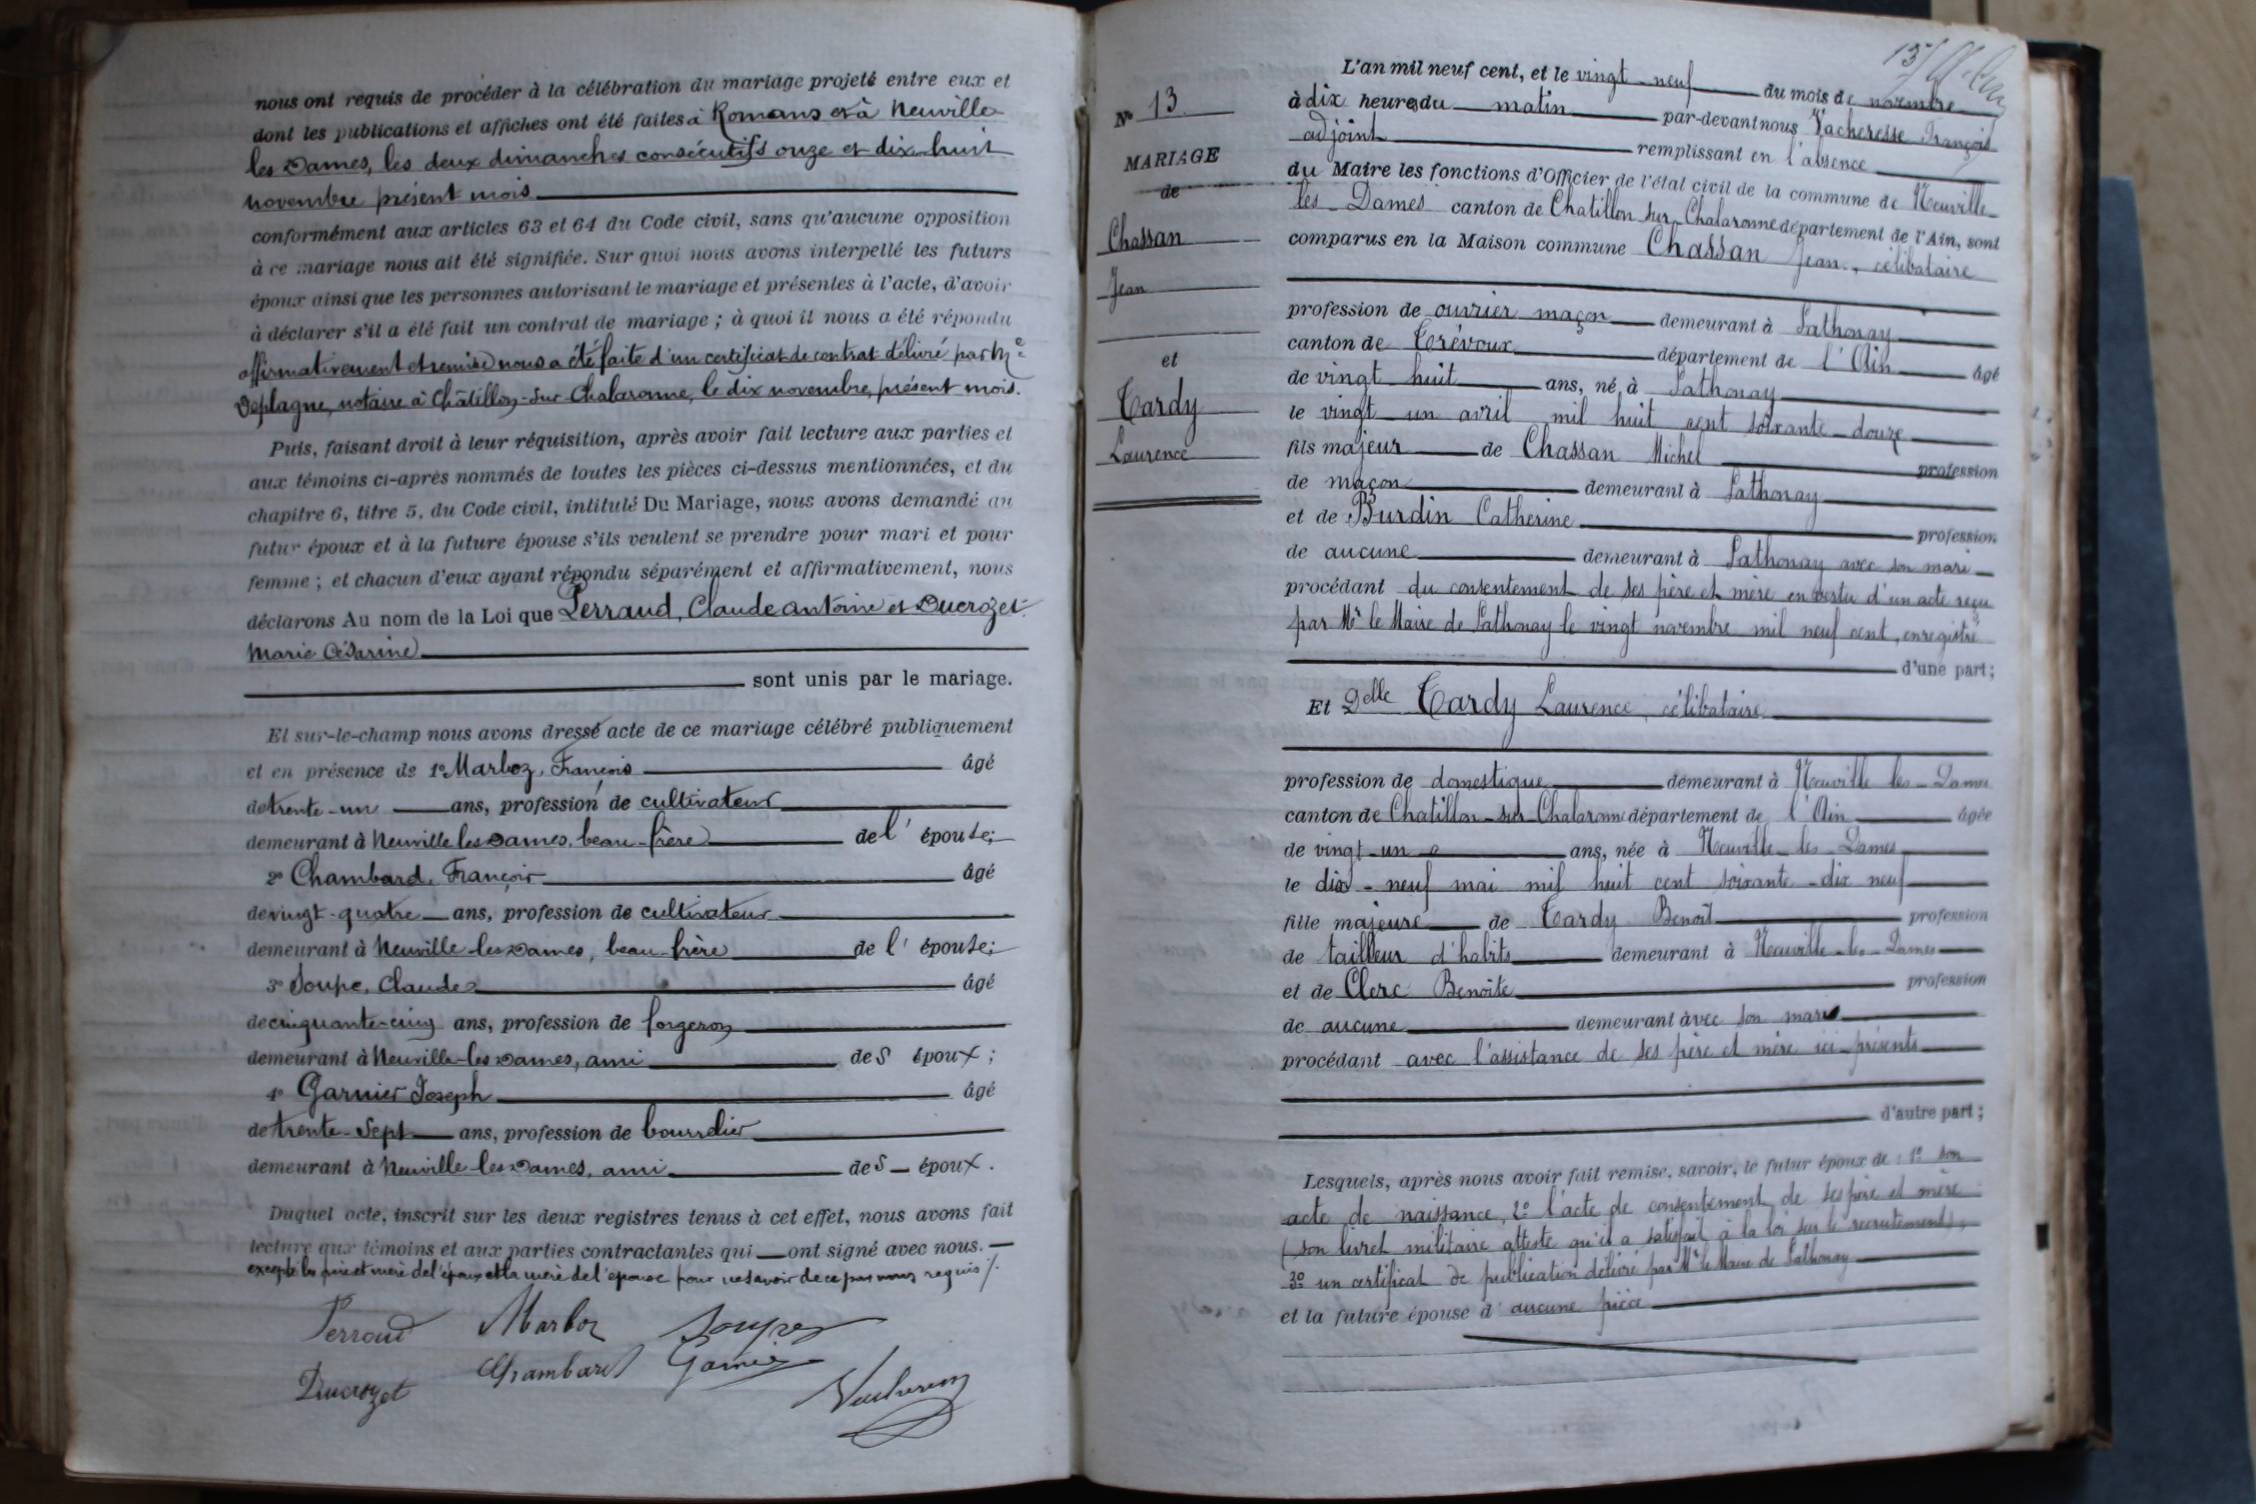 nous ont requis de procéder à la célébration du mariage projeté entre eux et
dont les publications et affiches ont été faites à Romans et à Neuville
les Dames, les deux dimanches consécutifs onze et dix-huit
novembre présent mois
conformément aux articles 63 et 64 du Code civil, sans qu'aucune opposition
à ce mariage nous ait été signifiée. Sur quoi nous avons interpellé les futurs
époux ainsi que les personnes autorisant le mariage et présentes à l'acte, d'avoir
à déclarer s'il a été fait un contrat de mariage ; à quoi il nous a été répondu
affirmativement et remise nous a été faite d'un certificat de contrat délivré par Me
Deplagne, notaire à Châtillon-sur-Chalaronne, le dix novembre, présent mois.
Puis, faisant droit à leur réquisition, après avoir fait lecture aux parties et
aux témoins ci-après nommés de toutes les pièces ci-dessus mentionnées, et du
chapitre 6, titre 5, du Code civil, intitulé Du Mariage, nous avons demandé au
futur époux et à la future épouse s'ils veulent se prendre pour mari et pour
femme ; et chacun d'eux ayant répondu séparément et affirmativement, nous
déclarons Au nom de la Loi que Perraud, Claude Antoine et Ducrozet
Marie Césarine
sont unis par le mariage.
Et sur-le-champ nous avons dressé acte de ce mariage célébré publiquement
et en présence de 1º Marboz, François âgé
de trente-un ans, profession de cultivateur
demeurant à Neuville les Dames, beau-frère de l' épouse;
2º Chambard, François âgé
de vingt-quatre ans, profession de cultivateur
demeurant à Neuville-les-Dames, beau-frère de l' épouse;
3º Soupe, Claude âgé
de cinquante-cinq ans, profession de forgeron
demeurant à Neuville-les-Dames, ami des époux ;
4º Garnier Joseph âgé
de trente-sept ans, profession de bourrelier
demeurant à Neuville-les-Dames, ami des époux.
Duquel acte, inscrit sur les deux registres tenus à cet effet, nous avons fait
lecture aux témoins et aux parties contractantes qui ont signé avec nous.
excepté les père et mère de l'époux et la mère de l'épouse pour ne savoir de ce par nous requis
Perroud Marboz Soupe
Ducrozet Chambard Garnier
Vacheresse
13
Nº 13
MARIAGE
de
Chassan
Jean
et
Tardy
Laurence
L'an mil neuf cent, et le vingt-neuf du mois de novembre
à dix heures du matin par-devant nous Vacheresse François
adjoint remplissant en l'absence
du Maire les fonctions d'Officier de l'état civil de la commune de Neuville-
les-Dames canton de Chatillon sur Chalaronne département de l'Ain, sont
comparus en la Maison commune Chassan Jean, célibataire
profession de ouvrier maçon demeurant à Sathonay
canton de Trévoux département de l'Ain âgé
de vingt huit ans, né à Sathonay
le vingt un avril mil huit cent soixante-douze
fils majeur de Chassan Michel profession
de maçon demeurant à Sathonay
et de Burdin Catherine profession
de aucune demeurant à Sathonay avec son mari
procédant du consentement de ses père et mère en vertu d'un acte reçu
par Mr le Maire de Sathonay le vingt novembre mil neuf cent, enregistré
d'une part;
Et Delle Tardy Laurence, célibataire
profession de domestique demeurant à Neuville-les-Dames
canton de Chatillon-sur Chalaronne département de l'Ain âgée
de vingt-un ans, née à Neuville-les-Dames
le dix-neuf mai mil huit cent soixante-dix neuf
fille majeure de Tardy Benoit profession
de tailleur d'habits demeurant à Neuville-les-Dames
et de Clerc Benoite profession
de aucune demeurant avec son mari
procédant avec l'assistance de ses père et mère ici-présents
d'autre part ;
Lesquels, après nous avoir fait remise, savoir, le futur époux de : 1º son
acte de naissance, 2º l'acte de consentement de ses père et mère
(son livret militaire atteste qu'il a satisfait à la loi sur le recrutement),
3º un certificat de publication délivré par Mr le Maire de Sathonay
et la future épouse d' aucune pièce